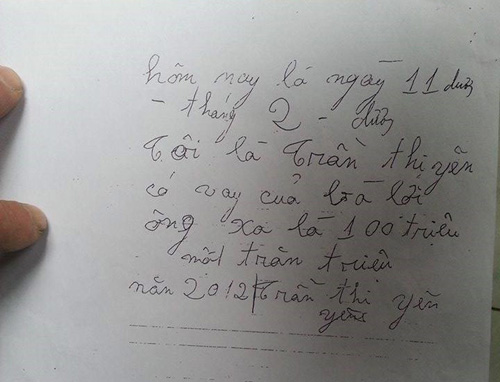 hôm nay là ngày 11 dươn
- tháng 2 - dươn
Tôi là Trần thị yến
có vay cuả bà lời
ông xa là 100 triệu
một trăn triệu
năn 2012 Trần thi yến
yến